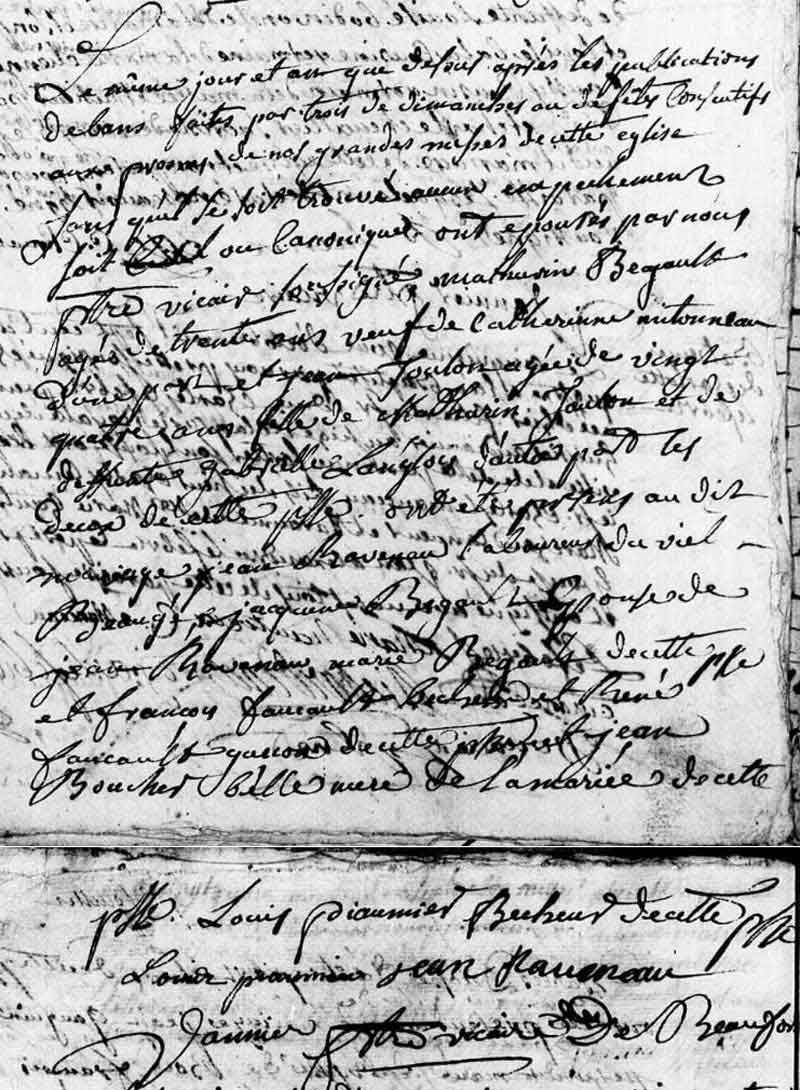 Le même jour et an que desus après les publications
de bans faites par trois de dimanches ou de fêtes Consecutifs
aux prones de nos grandes messes de cette eglise
sans qu'il se soit trouvé aucun empechement
soit Civil ou Canonique ont epousés par nous
ptre vicaire soussigné mathurin Begault
agés de trente ans veuf de Catherinne mitonneau
d'une part et jean Toulon agée de vingt
quatre ans fille de Matharin Toulon et de
deffunte gabrielle Langlois d'autre part les
deux de cette psse. ont etés presens au dit
mariage jean Raveneau laboureur du viel
Beaugé, jacquine Begault Epouse de
jean Raveneau marie Begault de cette psse
et francois faucault becheur et René
faucault garcon de cette psse et jean
Boucher bèlle mere de la mariée de cette
psse. Louis piaumier Becheur de cette psse
Louis piaumier jean Raveneau
Vannier ptre vicaire De Beaufort